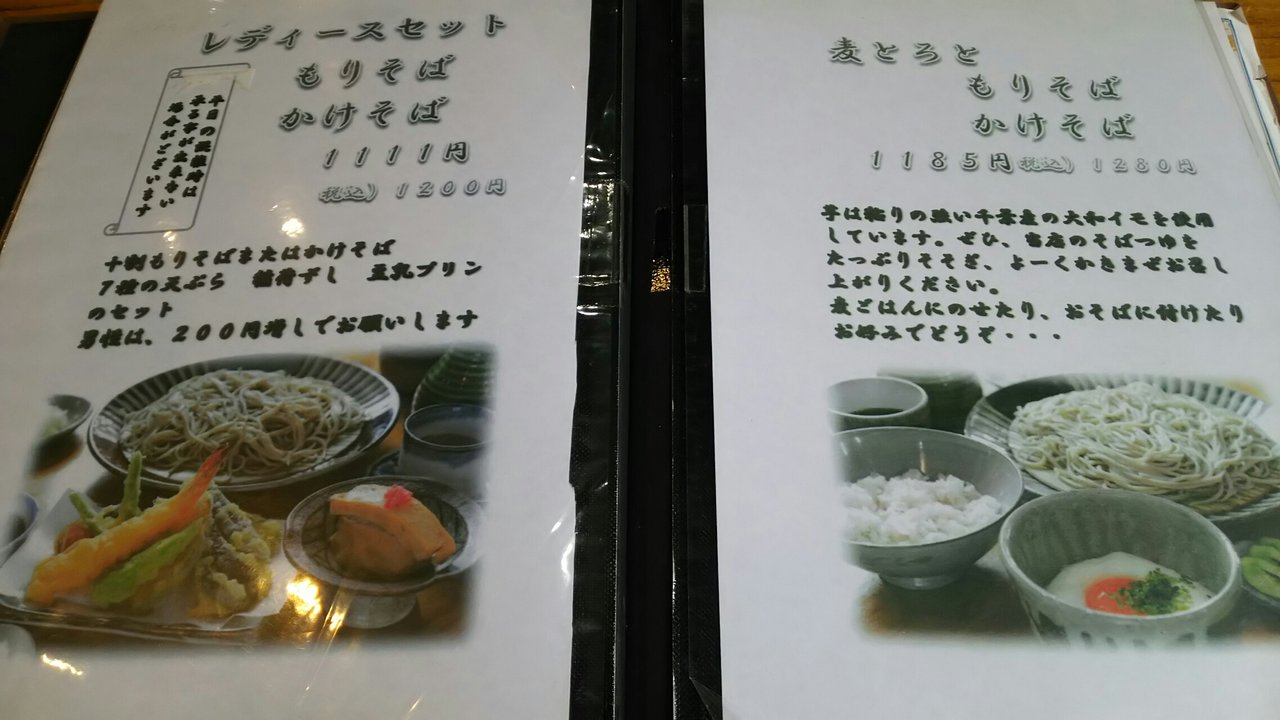 レディースセット
もりそば
かけそば
1111円
税込) 1200円
平日の混雑時は
承る事が出来ない
場合がございます
十割もりそばまたはかけそば
7種の天ぷら 稲荷ずし 豆乳プリン
のセット
男性は、200円増しでお願いします
麦とろと
もりそば
かけそば
1185円税込) 1280円
芋は粘りの強い千葉産の大和イモを使用
しています。ぜひ、当店のそばつゆを
たっぷりそそぎ、よーくかきまぜお召し
上がりください。
麦ごはんにのせたり、おそばに付けたり
お好みでどうぞ・・・